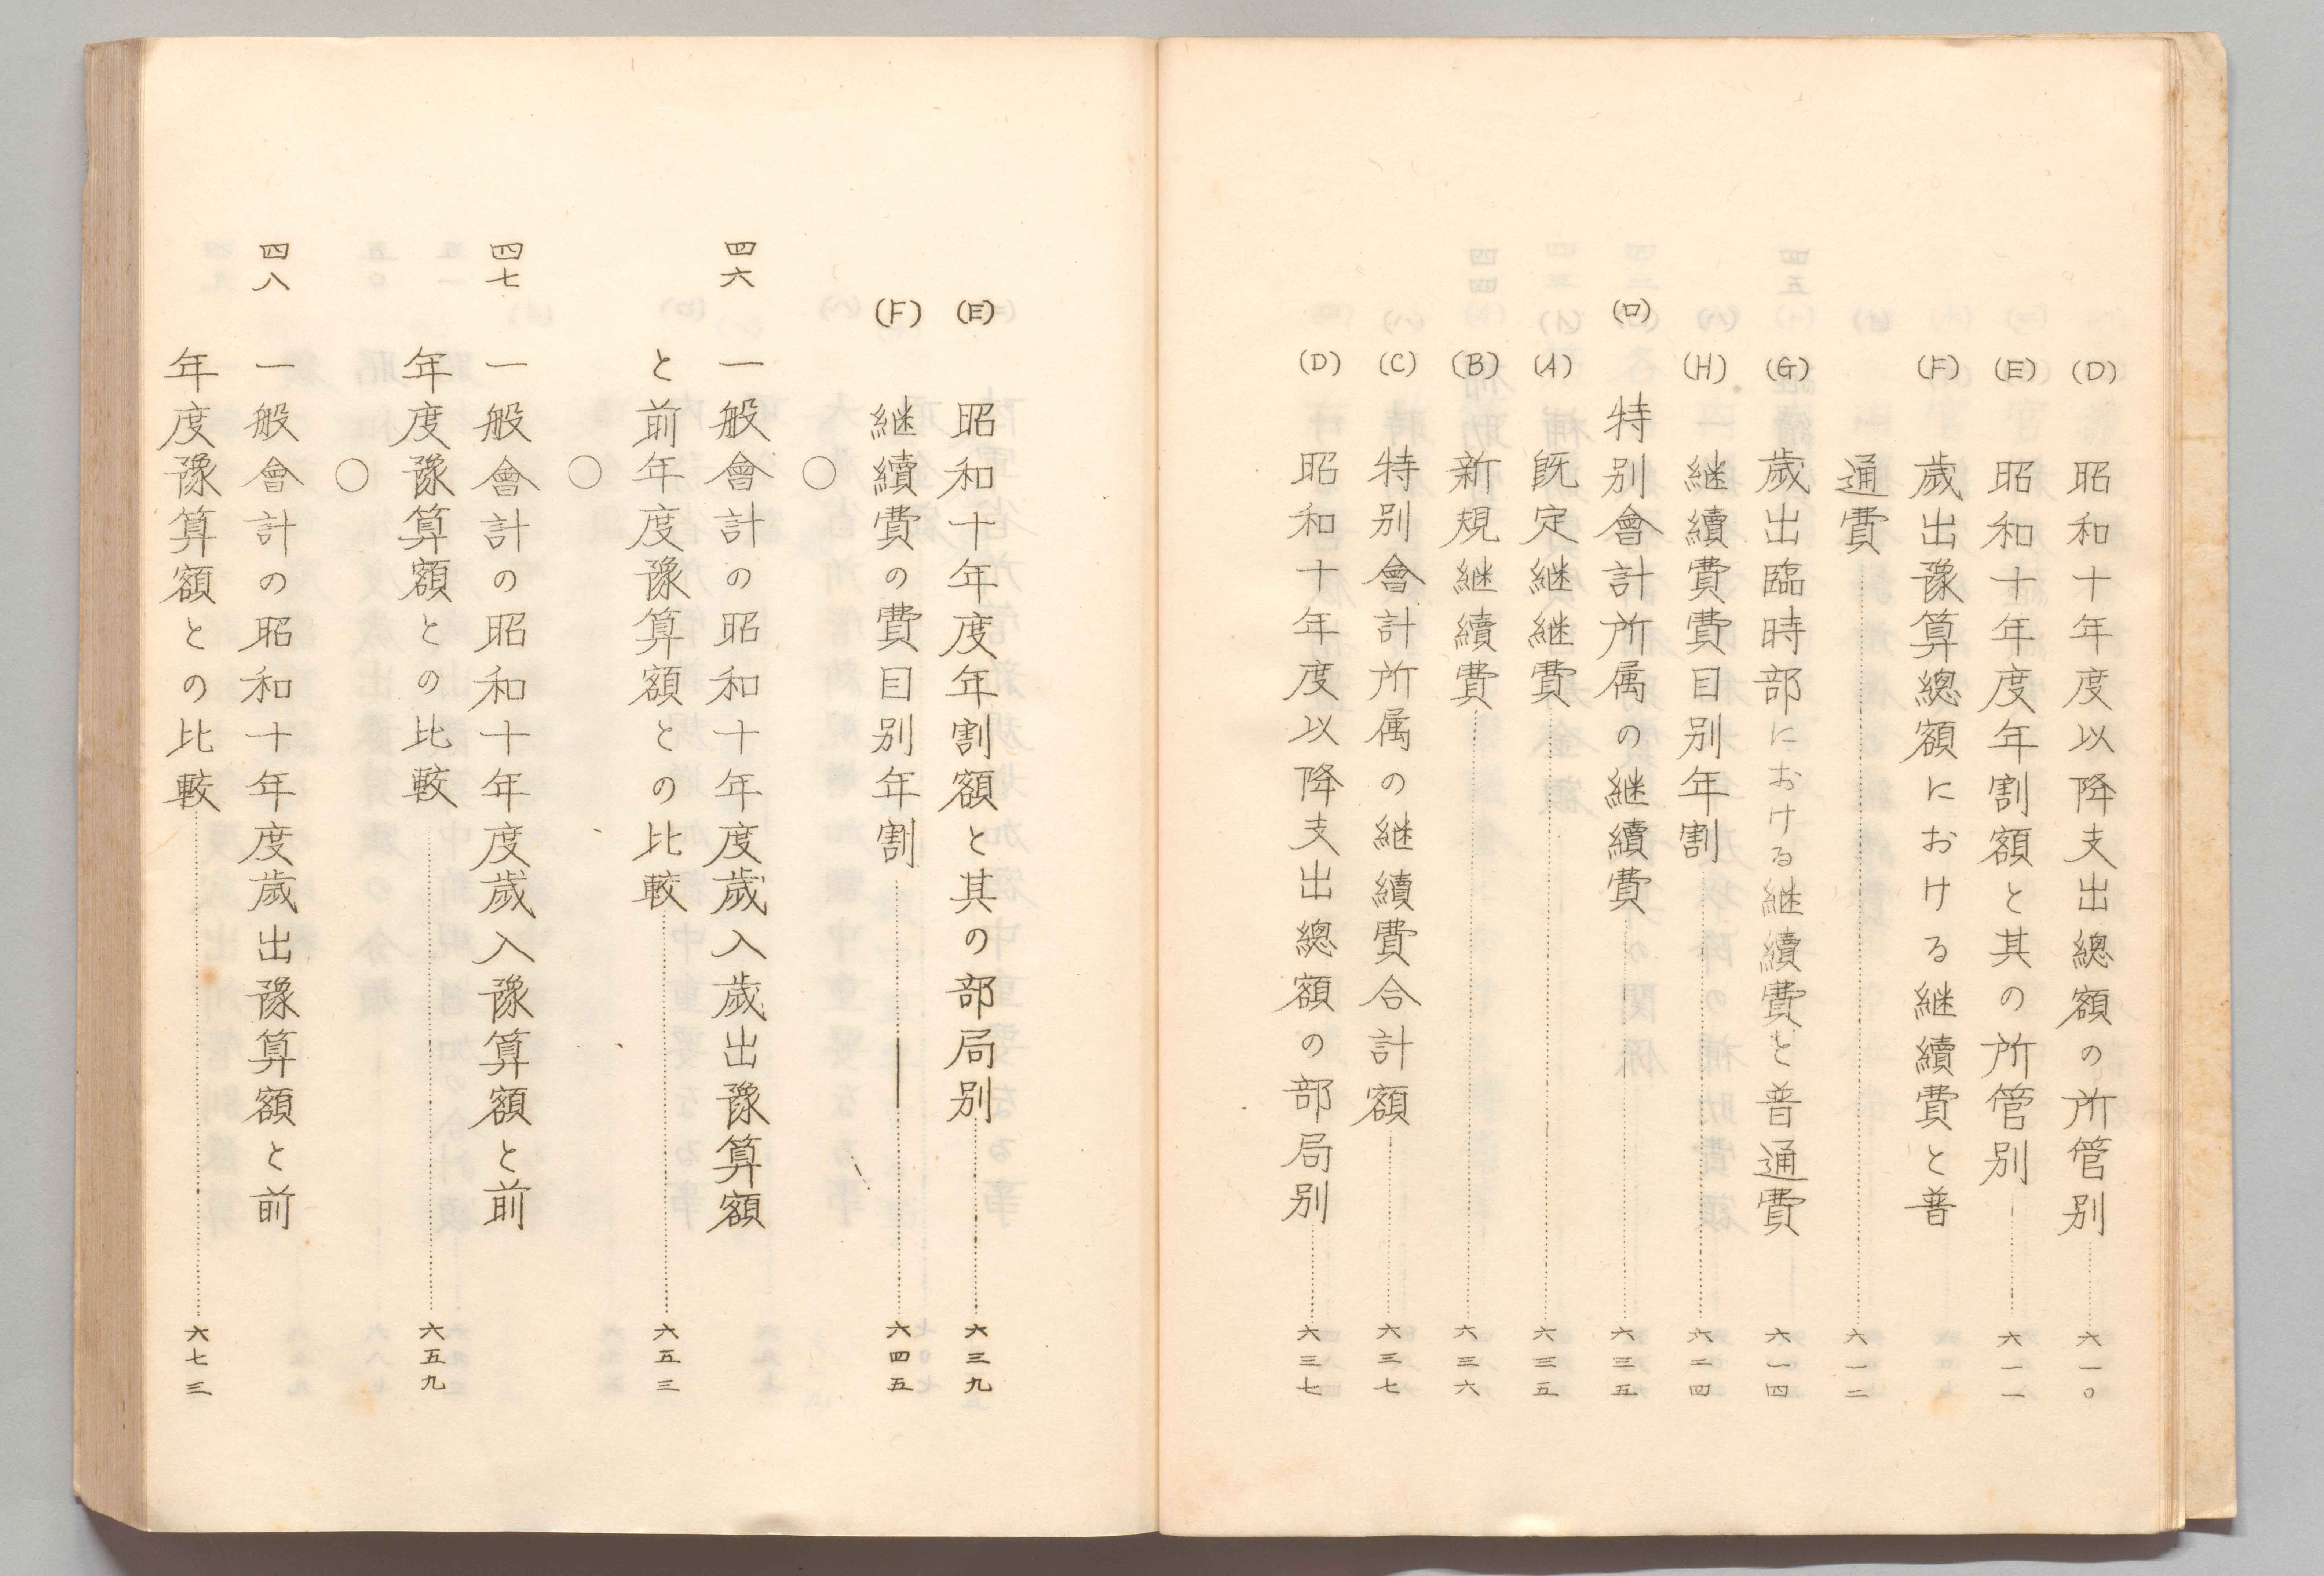 (D) 昭和十年度以降支出總額の所管別 六一〇
(E) 昭和十年度年割額と其の所管別 六一一
(F) 歲出豫算總額における継續費と普
通費 六一二
(G) 歲出臨時部における継續費と普通費 六一四
(H) 継續費費目別年割 六二四
(ロ) 特別會計所属の継續費 六三五
(A) 旣定継継費 六三五
(B) 新規継續費 六三六
(C) 特別會計所属の継續費合計額 六三七
(D) 昭和十年度以降支出總額の部局別 六三七
(E) 昭和十年度年割額と其の部局別 六三九
(F) 継續費の費目別年割 六四五
〇
四六 一般會計の昭和十年度歲入歲出豫算額
と前年度豫算額との比較 六五三
〇
四七 一般會計の昭和十年度歲入豫算額と前
年度豫算額との比較 六五九
〇
四八 一般會計の昭和十年度歲出豫算額と前
年度豫算額との比較 六七三